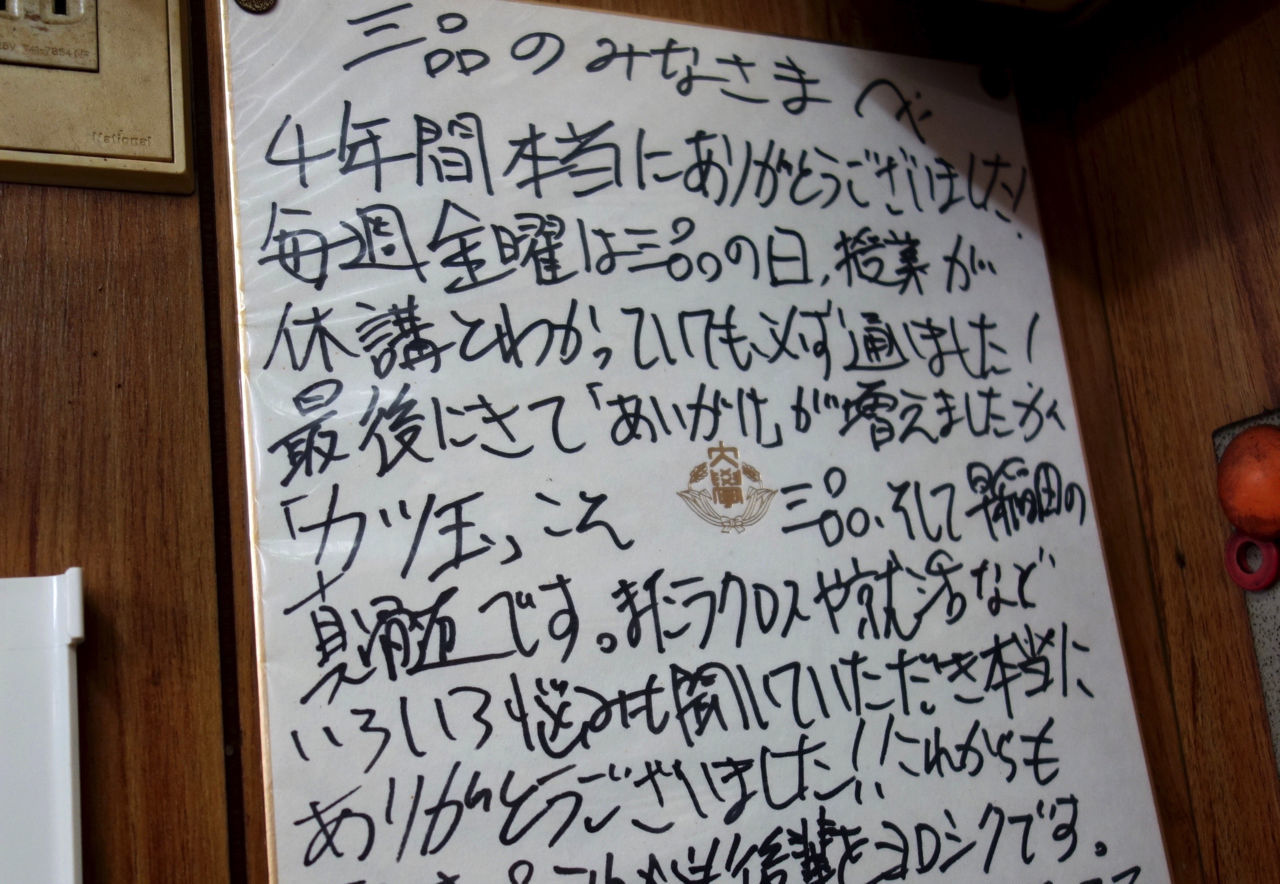 National
三品のみなさまへ
4年間本当にありがとうございました!
毎週金曜は三品の日、授業が
休講とわかっていても、必ず通いました!
最後にきて「あいがけ」が増えましたが、
「カツ玉」こそ 三品、そして早稲田の
大学
真髄です。またラクロスや就活など
いろいろ悩みも聞いていただき本当に
ありがとうございました!!これからも
後輩をヨロシクです。